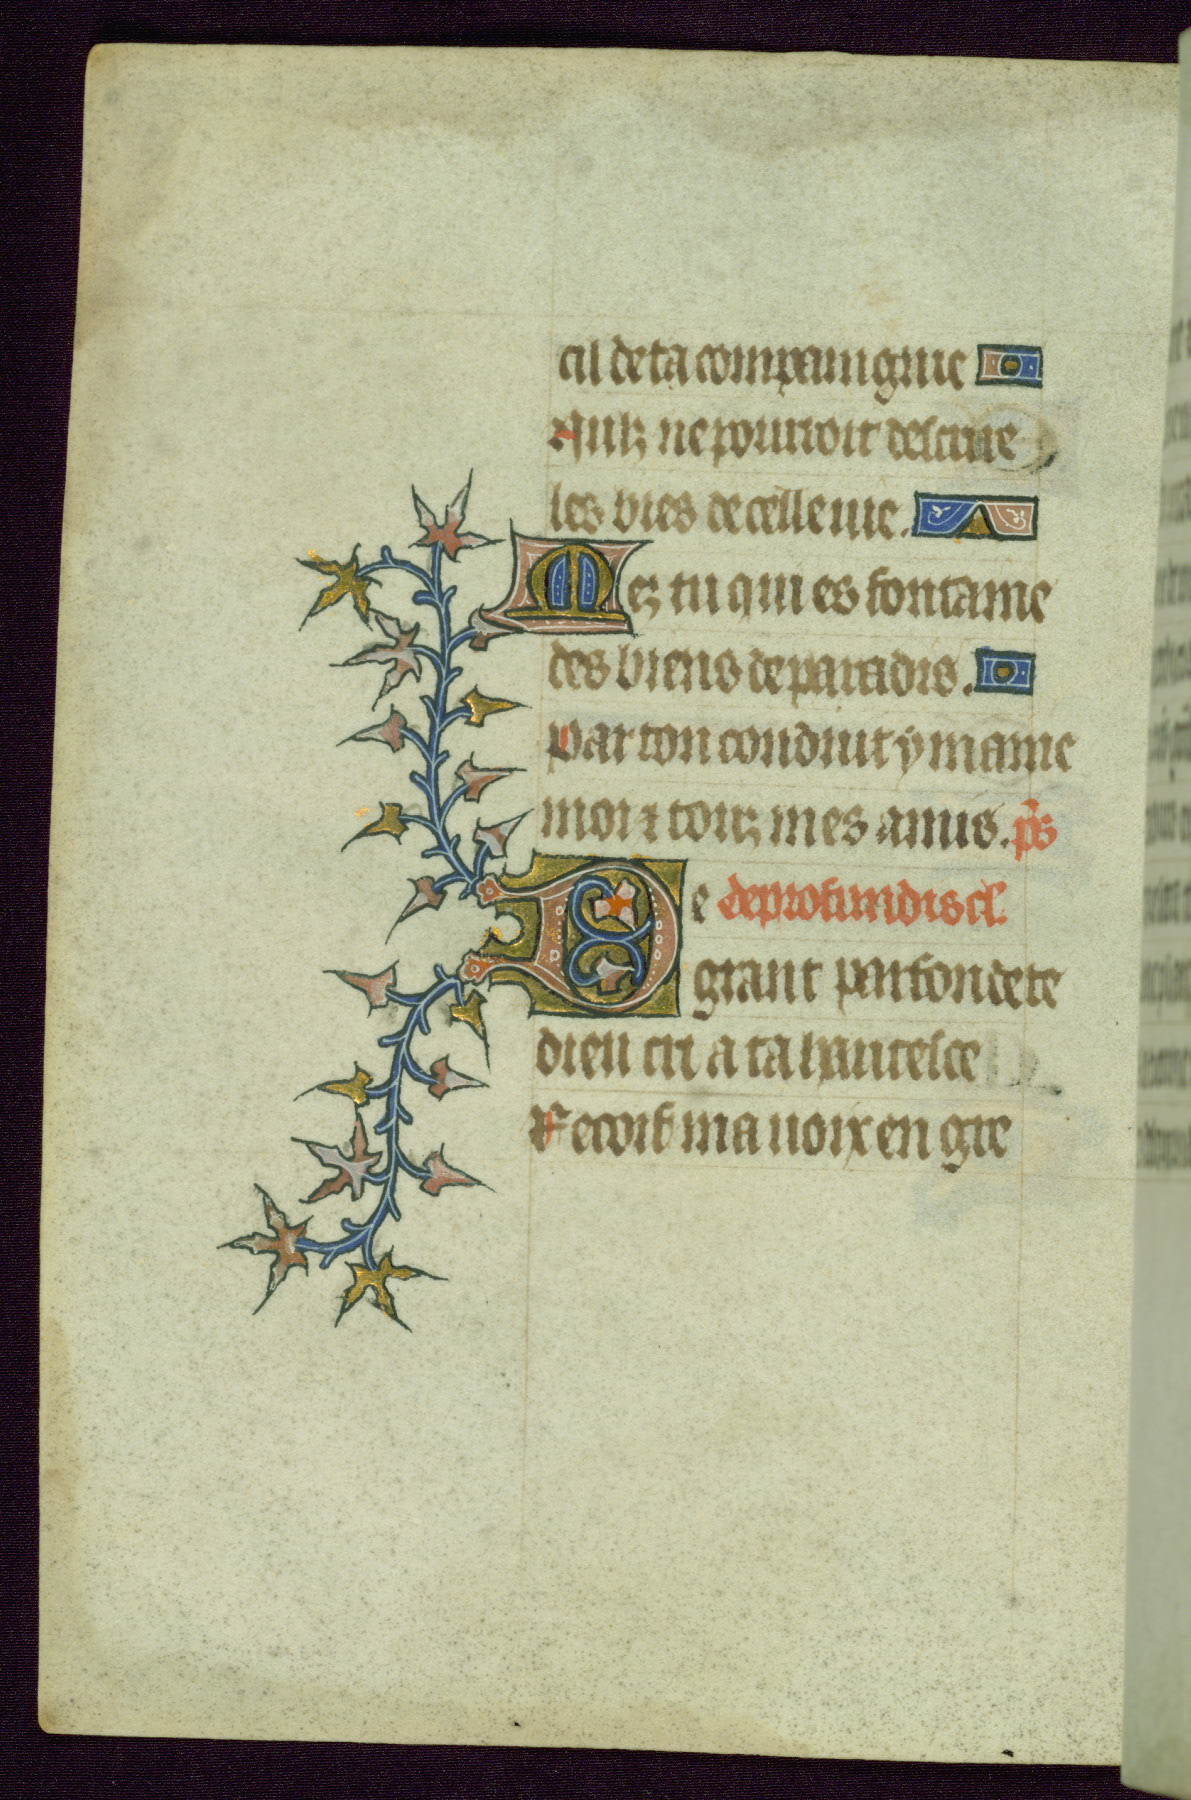 cil de ta compaingnie
Nulz ne pourroit descrire
les bies de celle vie.
Mez tu qui es fontaine
des biens de paradis.
Par ton conduit y maine
moi ⁊ touz mes amis. ps̃
De de profundis cl.
grant parfondete
dieu cri a ta hautesce
Recoif ma uoix en gre